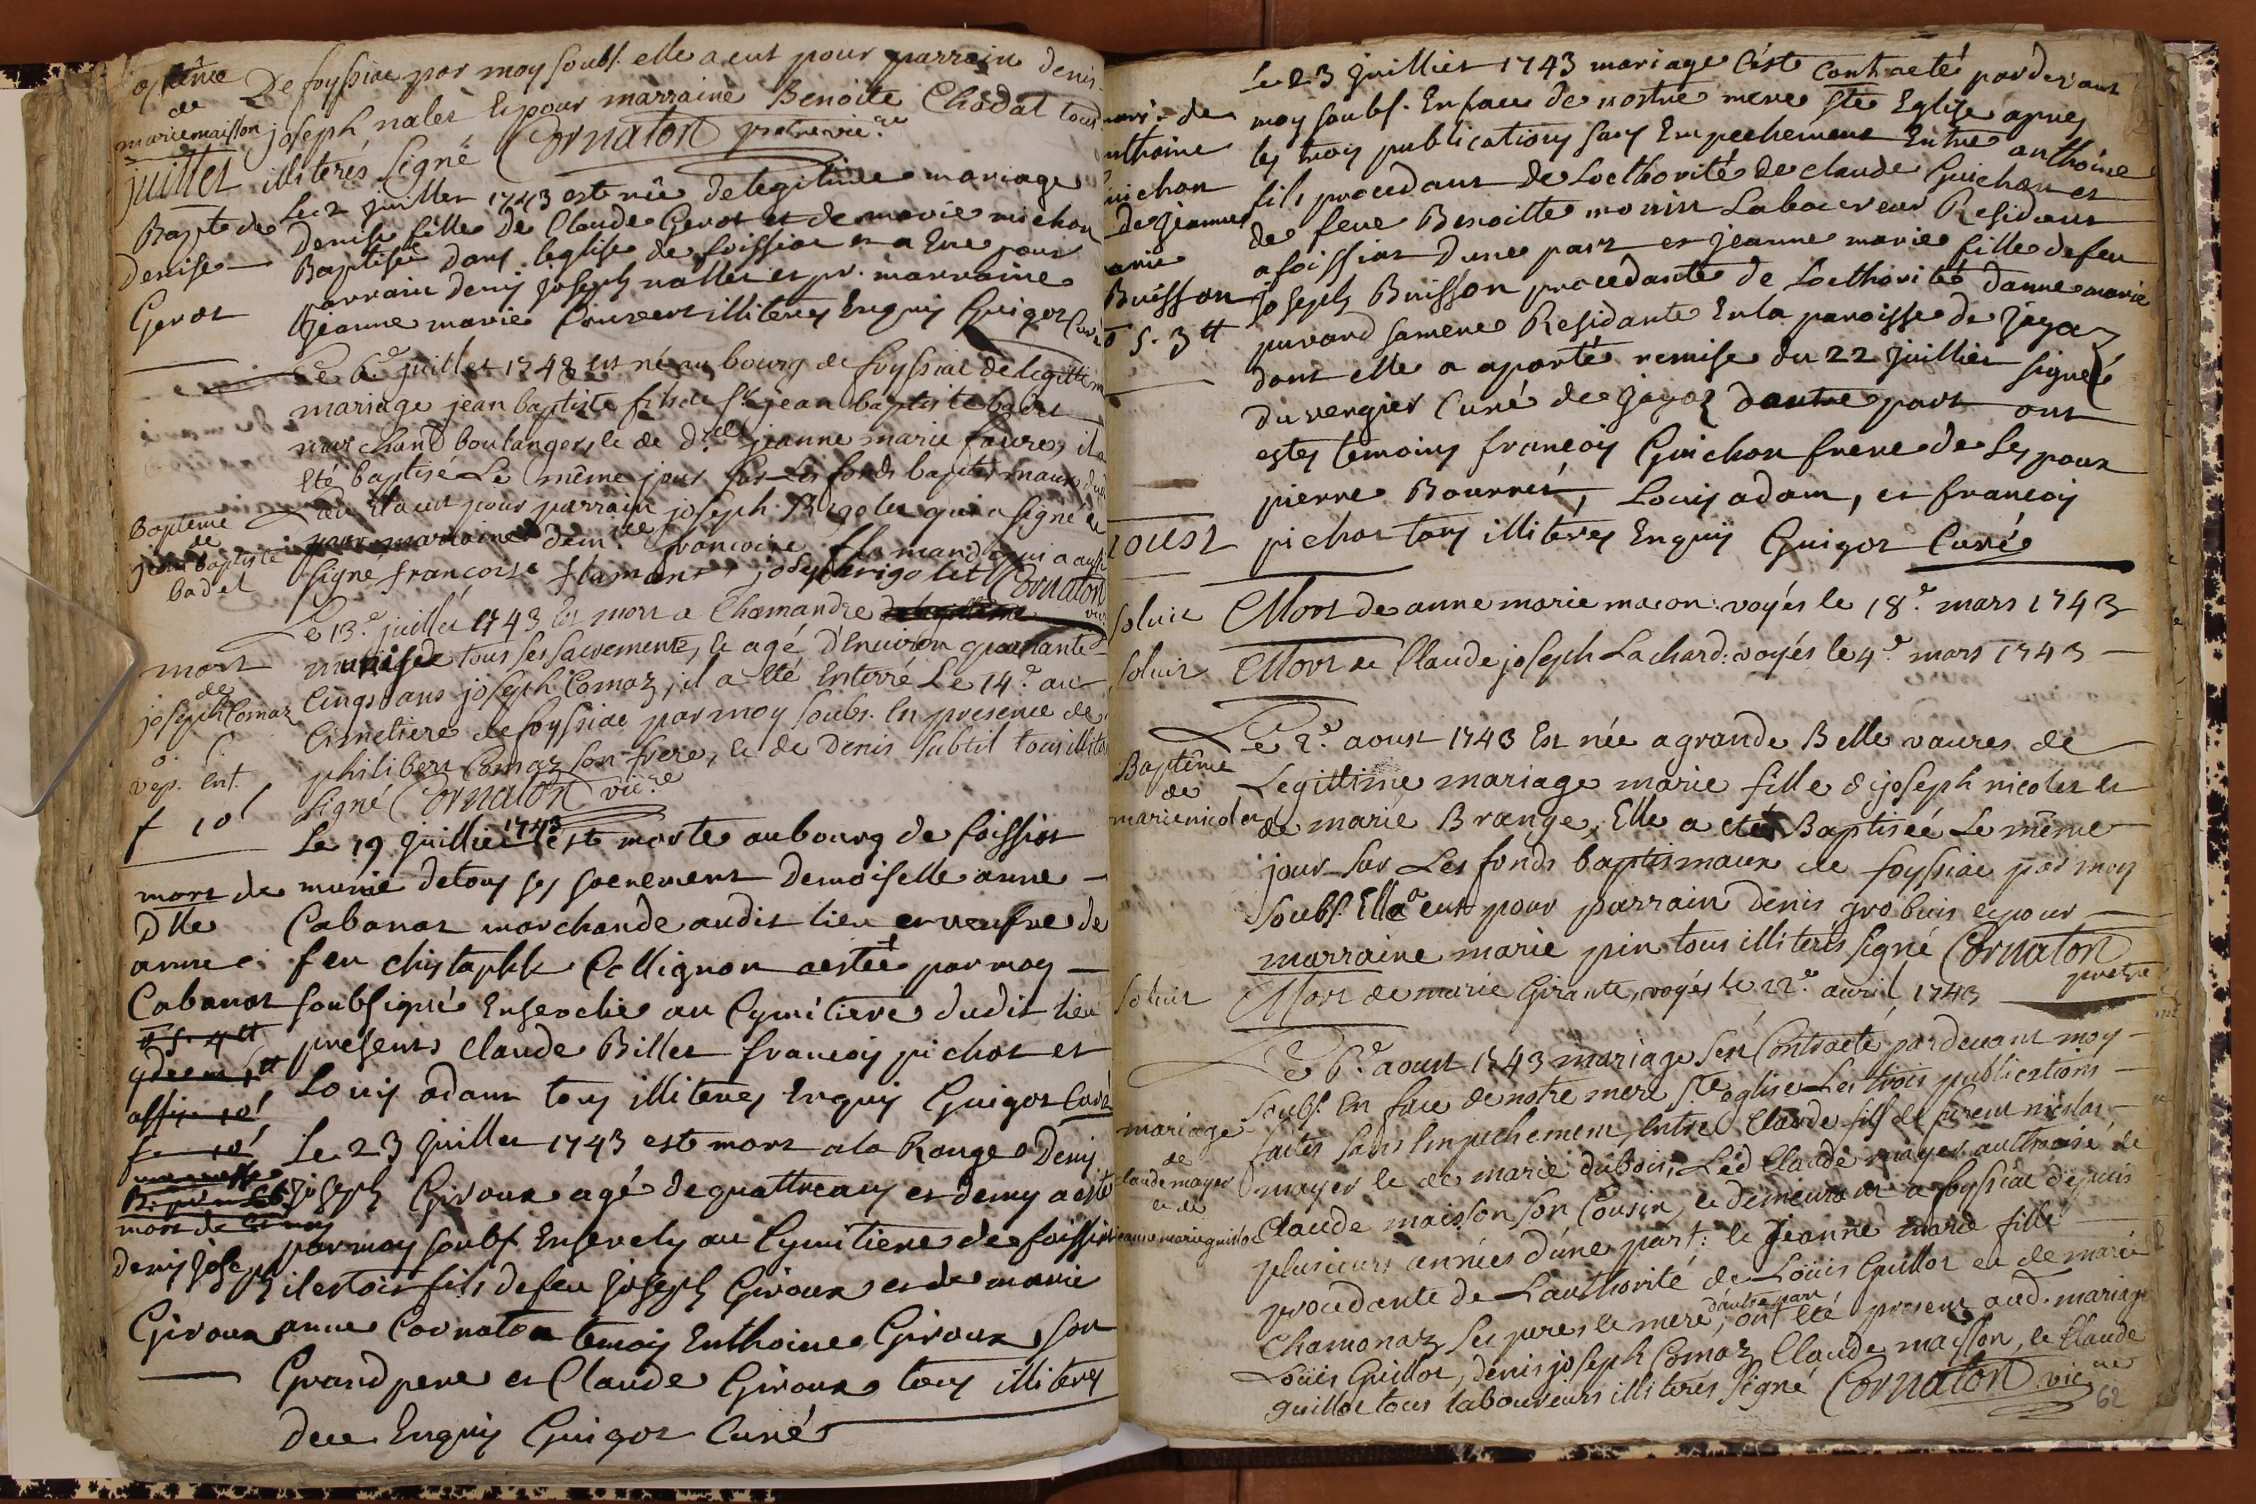 optême
de
marie maisson
De foyssiac par moy soubs. elle a eut pour parrain denis
joseph nalet et pour marraine Benoite Chódat tous
illiterés signé Cornaton prêtre vic.re
juillet
Bapt de
denise
Gerot
Le 2 juillet 1743 est née de legitime mariage
denise fille de Claude Gerot et de marie michon
Baptisée dans leglise de foissiat et a Eue pour
parrain denis joseph nallet et pr. marraine
jeanne marie Cruxent illiteres Enquis Guigot Curé
Bapteme
de
jean baptiste
badel
Le 6.e juillet 1743 est né au bourg de foyssiac de legittime
mariage jean baptiste fils de Sr. jean baptiste badel
marchand boulanger, et de d.elle jeanne marie faure, il a
été baptisé Le même jour sur Les fonds baptismaux dud
lieu il a eut pour parrain joseph Rigolet qui a signé et
pour marraine dem.lle francoise flamand qui a aussi
signé francoise flamant joseph rigolet Cornaton
vic
mort
de
joseph Comaz
vep. ent.
f 10s
Le 13.e juillet 1743 est mort a Chamandre
munis de tous ses sacrements, et agé d'Environ quarante
Cinqs ans joseph Comaz, il a eté Enterré Le 14.e au
Cimetiere de foyssiac par moy soubs. En presence de
philibert Comaz son frere, et de Denis subtil tous illiterés
signé Cornaton vic.re
mort de
Dlle
anne
Cabanat
Le 19 juilliet 1743 est morte au bourg de foissiat
munie de tous ses sacrement demoiselle anne
Cabanat marchande audit lieu et veufve de
feu chistophle Collignon a esteé par moy
soubsigné Ensevelie au Cymitiere dudit lieu
presents Claude Billet francois pichot et
Louis adam tous illiteres Enquis Guigot Curé
mort de
denis Joseph
Giroux
Le 23 juillet 1743 est mort a la Rouge Denis
Joseph Giroux agé de quattre ans et demy a esté
par moy soubs. Ensevely au Cymitiere de foissiat
il estoit fils de feu joseph Giroux et de marie
anne Cornaton temoins Enthoine Giroux son
Grand pere et Claude Giroux tous illiteres
deu Enquis Guigot Curé
mari. de
nthoine
uichon
de jeanne
arie
Buisson
5. 3 tt
Le 23 juilliet 1743 mariage s'est contracté par devant
moy soubs. En face de nostre mere ste Eglise apres
les trois publications sans Empechement Entre anthoine
fils procedant de Lotthorité de claude Guichon et
de feue Benoitte monin Laboureur Residant
a foissiat d'une part et jeanne marie fille de feu
joseph Buisson procedante de Lotthorité danne marie
puvand sa mere Residante En la paroisse de jayaz
dont elle a aporté remise du 22 juilliet signeé
duvergier Curé de jayaz dautre part ont
estes temoins francois Guichon frere de Lepoux
pierre Bourret, Louis adam, et francois
pichot tous illiteres Enquis Guigot Curé
aoust
solvit Mort de anne marie macon: voyés le 18.e mars 1743
solvit Mort de Claude joseph Lachard: voyés le 4.e mars 1743
Baptême
de
marie nicolet
Le 2.e aoust 1743 Est née a grande Belle vaures de
Legittime mariage marie fille de joseph nicolet et
de marie Brange, Elle a eté Baptiseé Le même
jour sur Les fonds baptismaux de foyssiac par moy
soubs. Elle a eut pour parrain denis grobuis et pour
marraine marie pin tous illiterés signé Cornaton
prêtre
solvit Mort de marie Girante, voyés le 22.e avril 1743
mariage
de
claude mayer
et de
jeanne marie guillot
Le 6.e aoust 1743 mariage s'est Contracté pardevant moy
soubs. En face de notre mere s.te eglise Les trois publications
faites sans Empechement, Entre Claude fils de furent nicolas
mayer et de marie dubois, Led Claude mayer authorisé de
Claude maisson son Cousin, et demeurant a foyssiac depuis
plusieurs années d'une part: et Jeanne marie fille
procedante de L'authorité de Loüis Guillot et de marie
Chamonaz ses peres et mere, d'autre part ont eté present aud. mariage
Loüis Guillot, denis joseph Comaz Claude maisson, et Claude
guillot tous laboureurs illiterés signé Cornaton vic.re
62